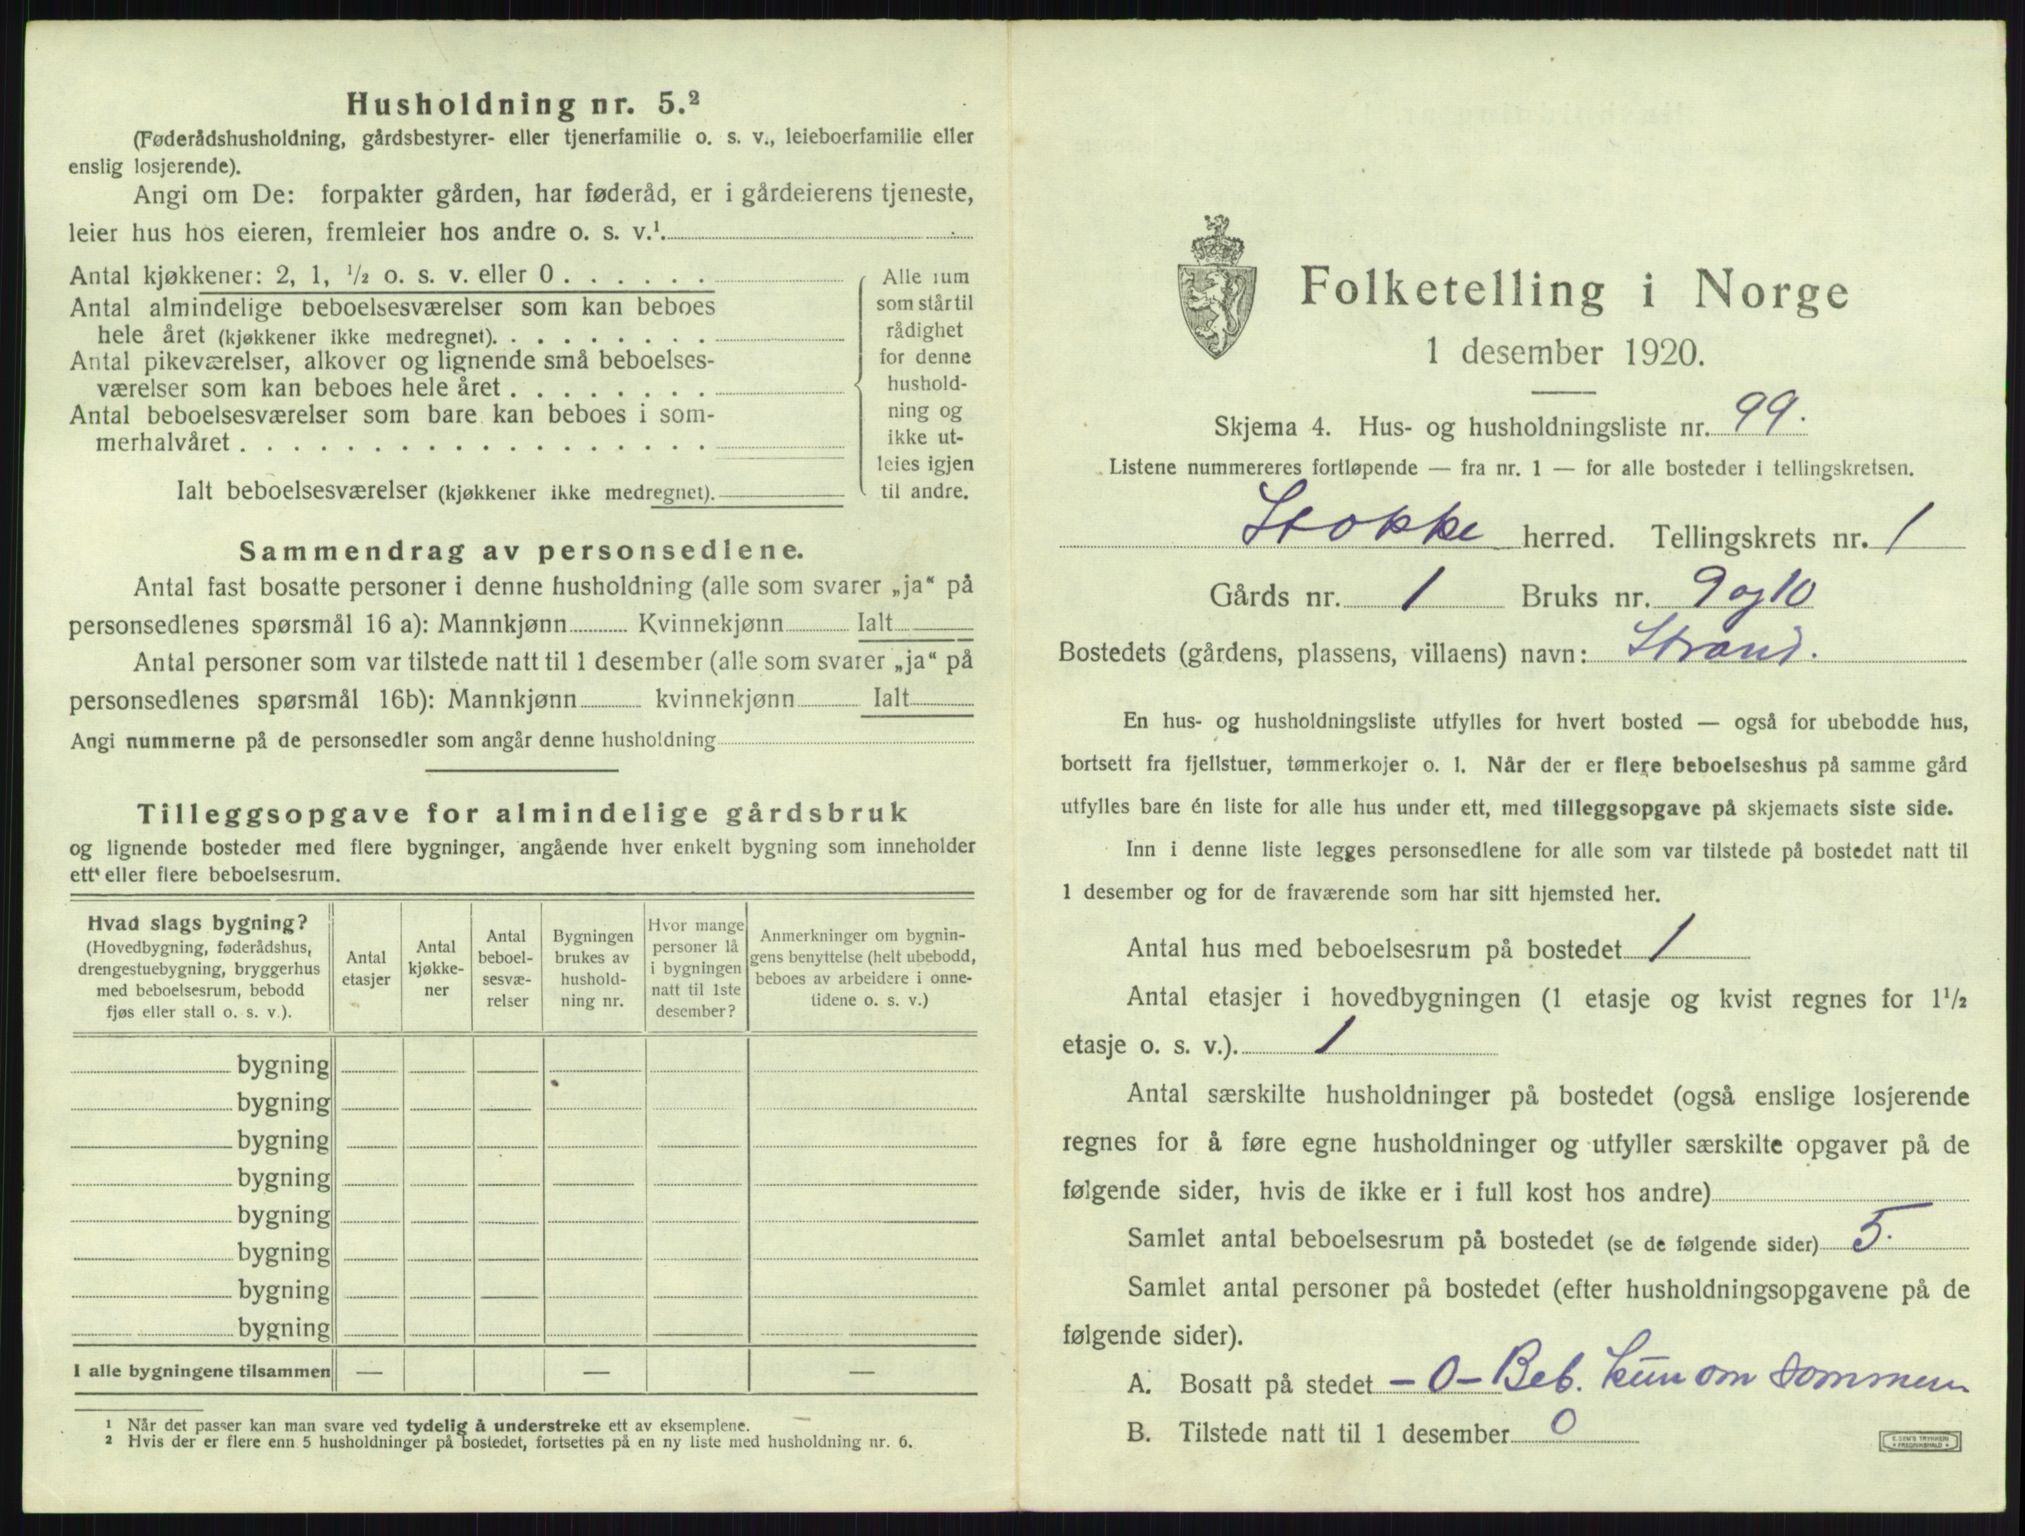 Husholdning nr. 5.²
(Føderådshusholdning, gårdsbestyrer- eller tjenerfamilie o. s. v., leieboerfamilie eller
enslig losjerende).
Angi om De: forpakter gården, har føderåd, er i gårdeierens tjeneste,
leier hus hos eieren, fremleier hos andre o. s. v.¹
Antal kjøkkener: 2, 1, ½ o. s. v. eller 0 . . . . . .
Antal almindelige beboelsesværelser som kan beboes
hele året (kjøkkener ikke medregnet). . . . . . . . .
Antal pikeværelser, alkover og lignende små beboelses-
værelser som kan beboes hele året . . . . . . . .
Antal beboelsesværelser som bare kan beboes i som-
merhalvåret . . . . . . . . . . . . . . . . . .
Ialt beboelsesværelser (kjøkkener ikke medregnet).
Alle rum
som står til
rådighet
for denne
hushold-
ning og
ikke ut-
leies igjen
til andre.
Sammendrag av personsedlene.
Antal fast bosatte personer i denne husholdning (alle som svarer „ja“ på
personsedlenes spørsmål 16 a): Mannkjønn Kvinnekjønn Ialt
Antal personer som var tilstede natt til 1 desember (alle som svarer „ja“ på
personsedlenes spørsmål 16b): Mannkjønn kvinnekjønn Ialt
Angi nummerne på de personsedler som angår denne husholdning
Tilleggsopgave for almindelige gårdsbruk
og lignende bosteder med flere bygninger, angående hver enkelt bygning som inneholder
ett eller flere beboelsesrum.
Hvad slags bygning?
(Hovedbygning, føderådshus,
drengestuebygning, bryggerhus
med beboelsesrum, bebodd
fjøs eller stall o. s. v.).
Antal
etasjer
Antal
kjøkke-
ner
Antal
beboel-
sesvæ-
relser
Bygningen
brukes av
hushold-
ning nr.
Hvor mange
personer lå
i bygningen
natt til 1ste
desember?
Anmerkninger om bygnin-
gens benyttelse (helt ubebodd,
beboes av arbeidere i onne-
tidene o. s. v.)
bygning
bygning
bygning
bygning
bygning
bygning
bygning
bygning
I alle bygningene tilsammen — — —
¹ Når det passer kan man svare ved tydelig å understreke ett av eksemplene.
² Hvis der er flere enn 5 husholdninger på bostedet, fortsettes på en ny liste med husholdning nr. 6.
Folketelling i Norge
1 desember 1920.
Skjema 4. Hus- og husholdningsliste nr. 99.
Listene nummereres fortløpende — fra nr. 1 — for alle bosteder i tellingskretsen.
Stokke herred. Tellingskrets nr. 1
Gårds nr. 1 Bruks nr. 9 og 10
Bostedets (gårdens, plassens, villaens) navn: Strand.
En hus- og husholdningsliste utfylles for hvert bosted — også for ubebodde hus,
bortsett fra fjellstuer, tømmerkojer o. l. Når der er flere beboelseshus på samme gård
utfylles bare én liste for alle hus under ett, med tilleggsopgave på skjemaets siste side.
Inn i denne liste legges personsedlene for alle som var tilstede på bostedet natt til
1 desember og for de fraværende som har sitt hjemsted her.
Antal hus med beboelsesrum på bostedet 1
Antal etasjer i hovedbygningen (1 etasje og kvist regnes for 1½
etasje o. s. v.). 1
Antal særskilte husholdninger på bostedet (også enslige losjerende
regnes for å føre egne husholdninger og utfyller særskilte opgaver på de
følgende sider, hvis de ikke er i full kost hos andre)
Samlet antal beboelsesrum på bostedet (se de følgende sider) 5.
Samlet antal personer på bostedet (efter husholdningsopgavene på de
følgende sider).
A. Bosatt på stedet - 0 - Beb. kun om sommeren
B. Tilstede natt til 1 desember 0
E. SEM'S TRYKKERI
FREDRIKSHALD